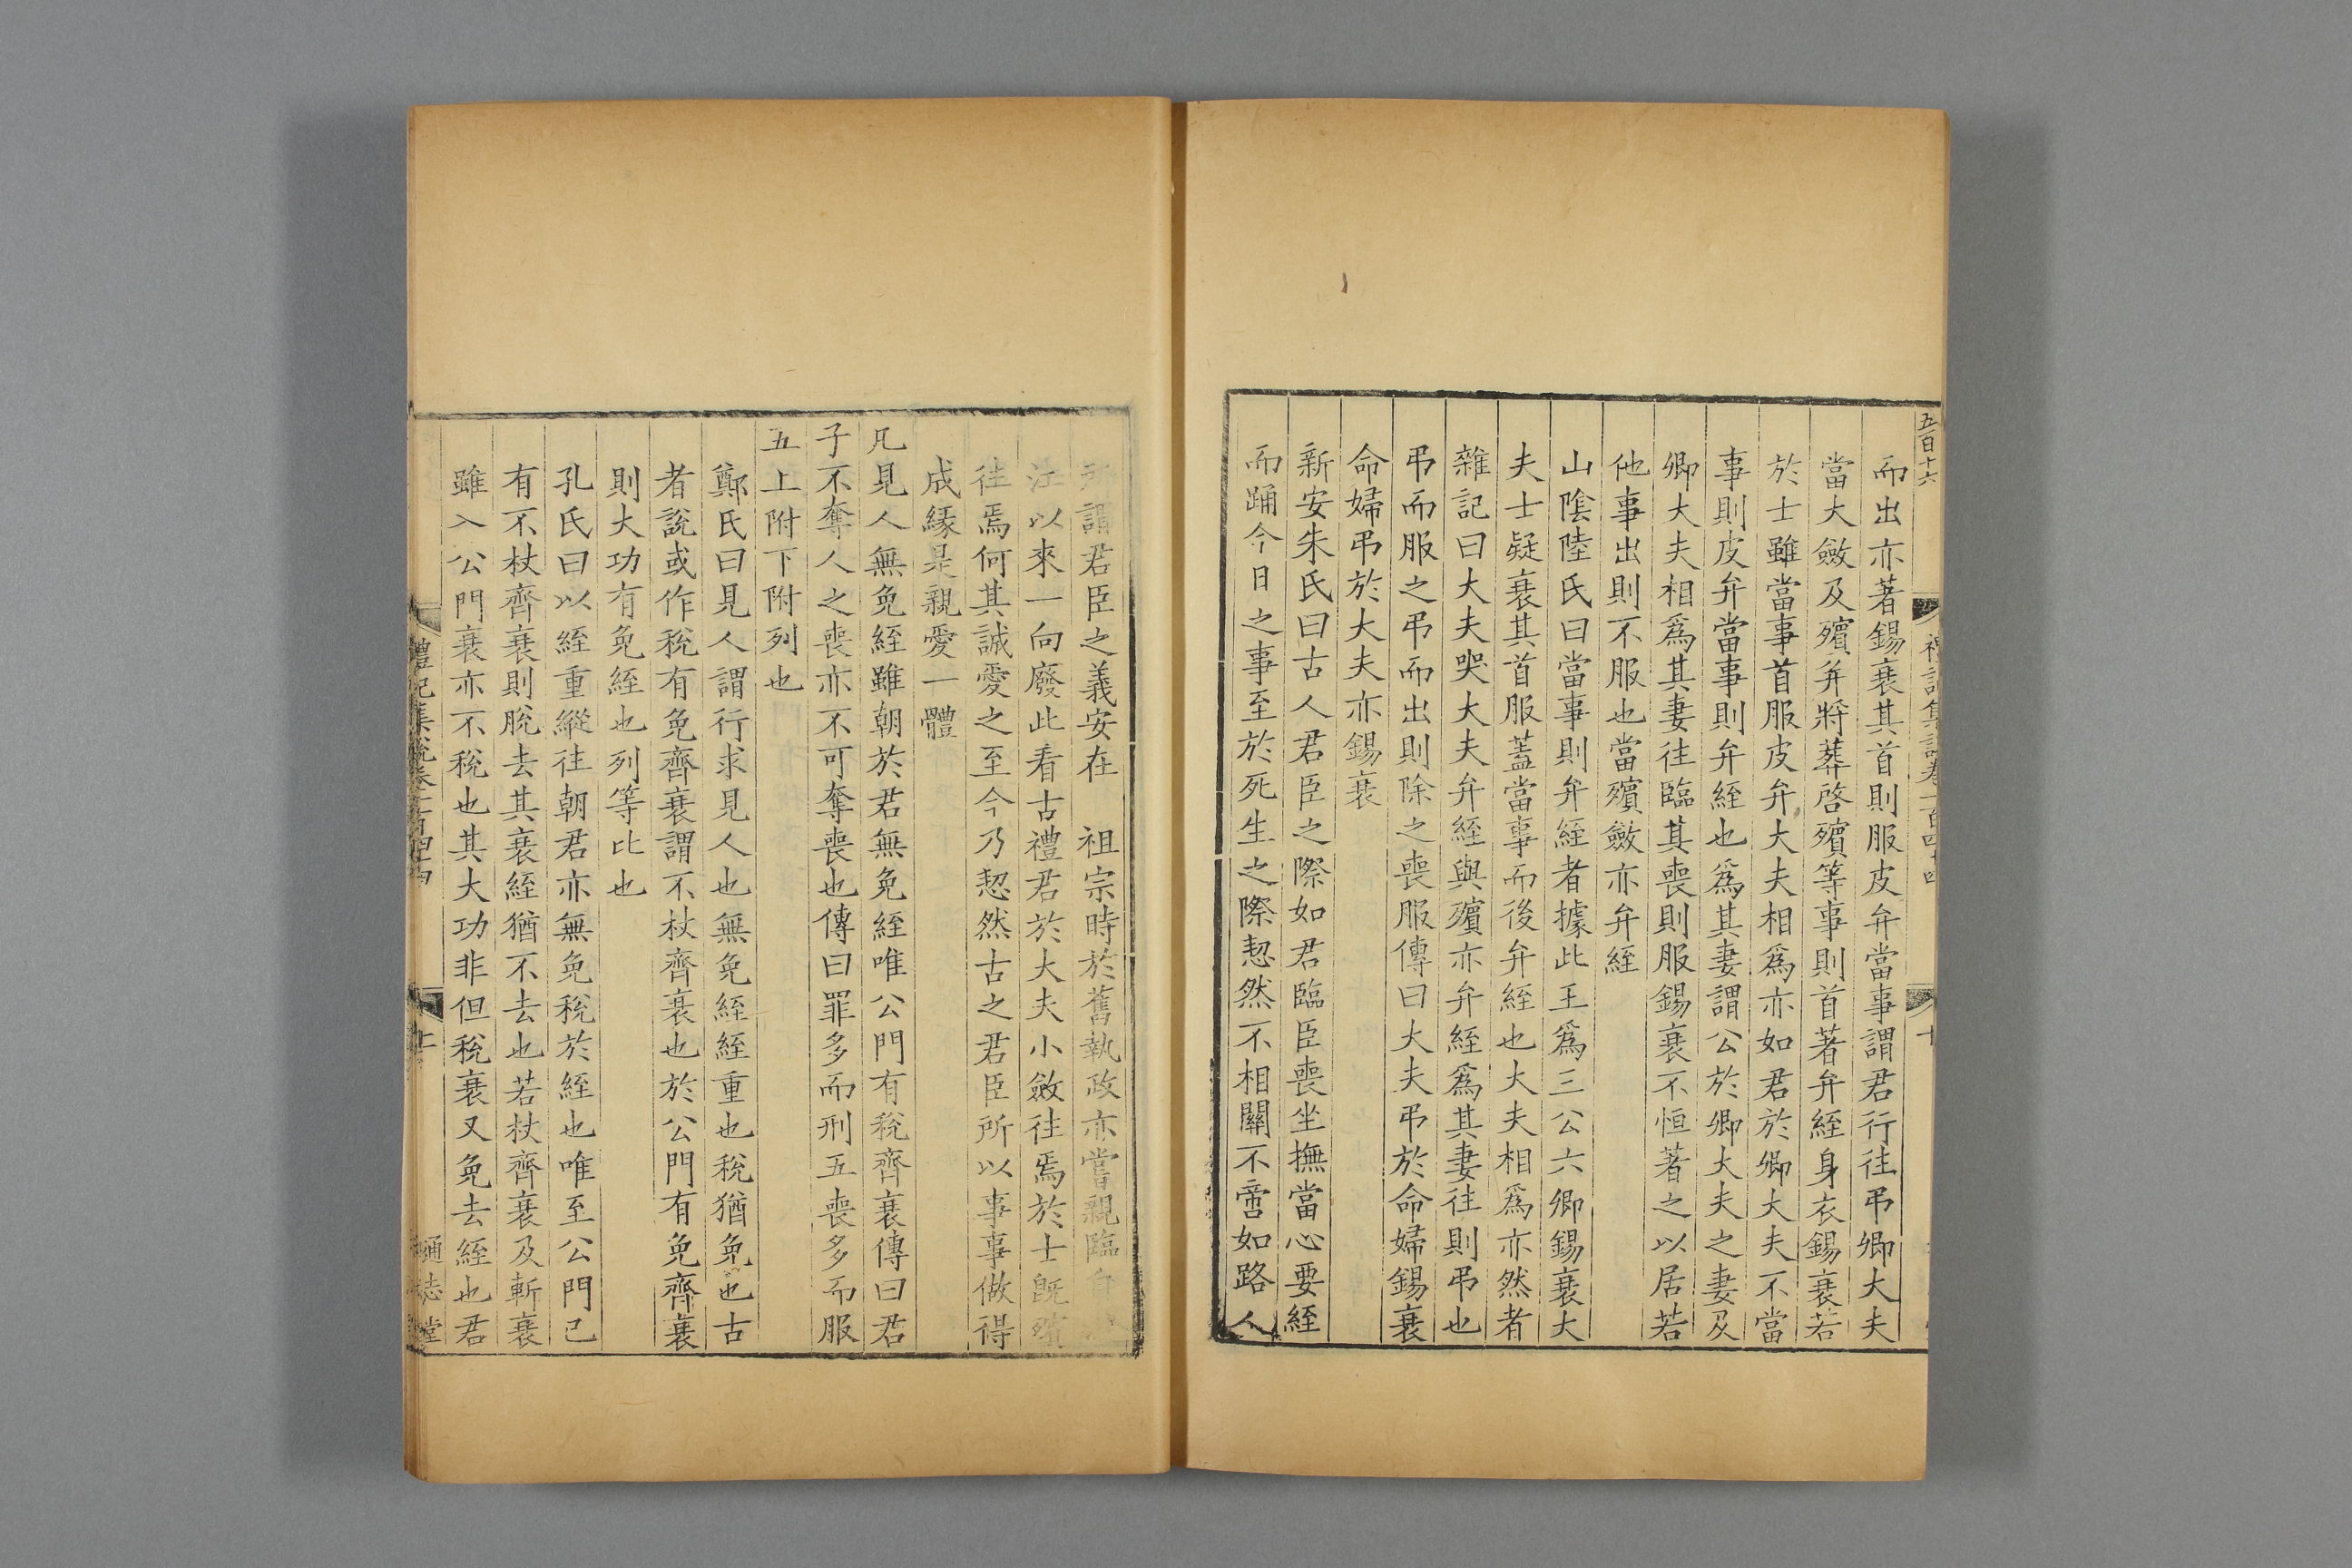 五百十六
而出亦著錫衰其首則服皮弁當事謂君行往弔卿大夫
當大斂及殯并將葬啓殯等事則首著弁絰身衣錫衰若
於士雖當事首服皮弁大夫相爲亦如君於卿大夫不當
事則皮弁當事則弁絰也爲其妻謂公於卿大夫之妻及
卿大夫相爲其妻往臨其喪則服錫衰不恒著之以居若
他事出則不服也當殯斂亦弁絰
山陰陸氏曰當事則弁絰者據此王爲三公六卿錫衰大
夫士疑衰其首服蓋當事而後弁絰也大夫相爲亦然者
雜記曰大夫哭大夫弁絰與殯亦弁絰爲其妻往則弔也
弔而服之弔而出則除之喪服傳曰大夫弔於命婦錫衰
命婦弔於大夫亦錫衰
新安朱氏曰古人君臣之際如君臨臣喪坐撫當心要絰
而踊今日之事至於死生之際恝然不相關不啻如路人
所謂君臣之義安在　祖宗時於舊執政亦嘗親臨自
以來一向廢此看古禮君於大夫小斂往焉於士旣殯
往焉何其誠愛之至今乃恝然古之君臣所以事事做得
成緣是親愛一體
凡見人無免絰雖朝於君無免絰唯公門有稅齊衰傳曰君
子不奪人之喪亦不可奪喪也傳曰罪多而刑五喪多而服
五上附下附列也
鄭氏曰見人謂行求見人也無免絰絰重也稅猶免也古
者說或作稅有免齊衰謂不杖齊衰也於公門有免齊衰
則大功有免絰也列等比也
孔氏曰以絰重縱往朝君亦無免稅於絰也唯至公門已
有不杖齊衰則脫去其衰絰猶不去也若杖齊衰及斬衰
雖入公門衰亦不稅也其大功非但稅衰又免去絰也君
禮記集說卷一百四十四
十一
通志堂